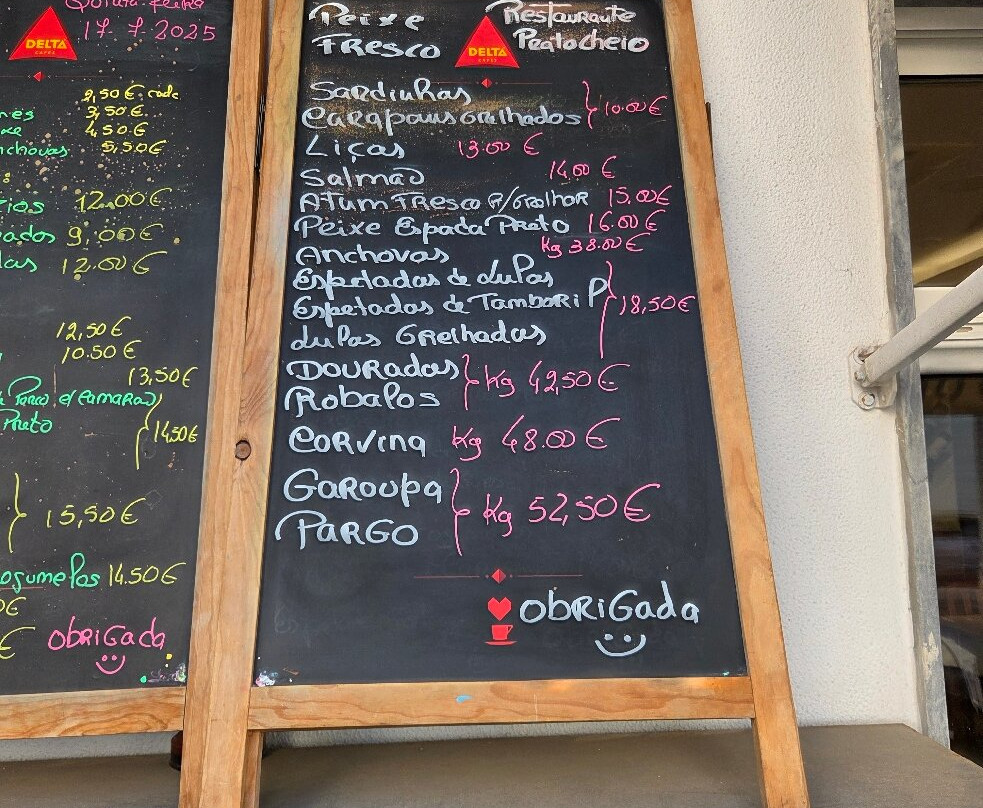 Quinta-feira
17.7.2025
DELTA
CAFÉS
3,50€
4,50€
nchovas 5,50€
12.00€
ados 9,00€
las 12.00€
12,50€
10.50€
13,50€
Preto
14,50€
15,50€
ogumelos 14.50€
€
obRiGada
Peixe
FResco
DELTA
CAFÉS
RestauRante
Pratocheio
SaRdinhas
CaRapaus GRelhados
10.00€
Liças 13.00€
Salmão 14.00€
Atum FResco P/GRelhoR 15.00€
Peixe Espada PReto 16.00€
Anchovas Kg 38.00€
Espetadas de Lulas
Espetadas de TamboRiP
Lulas GRelhadas
18,50€
DOURadas
Robalos
Kg 42,50€
CoRvina Kg 48.00€
GaRoupa
PaRGO
Kg 52,50€
obRiGada